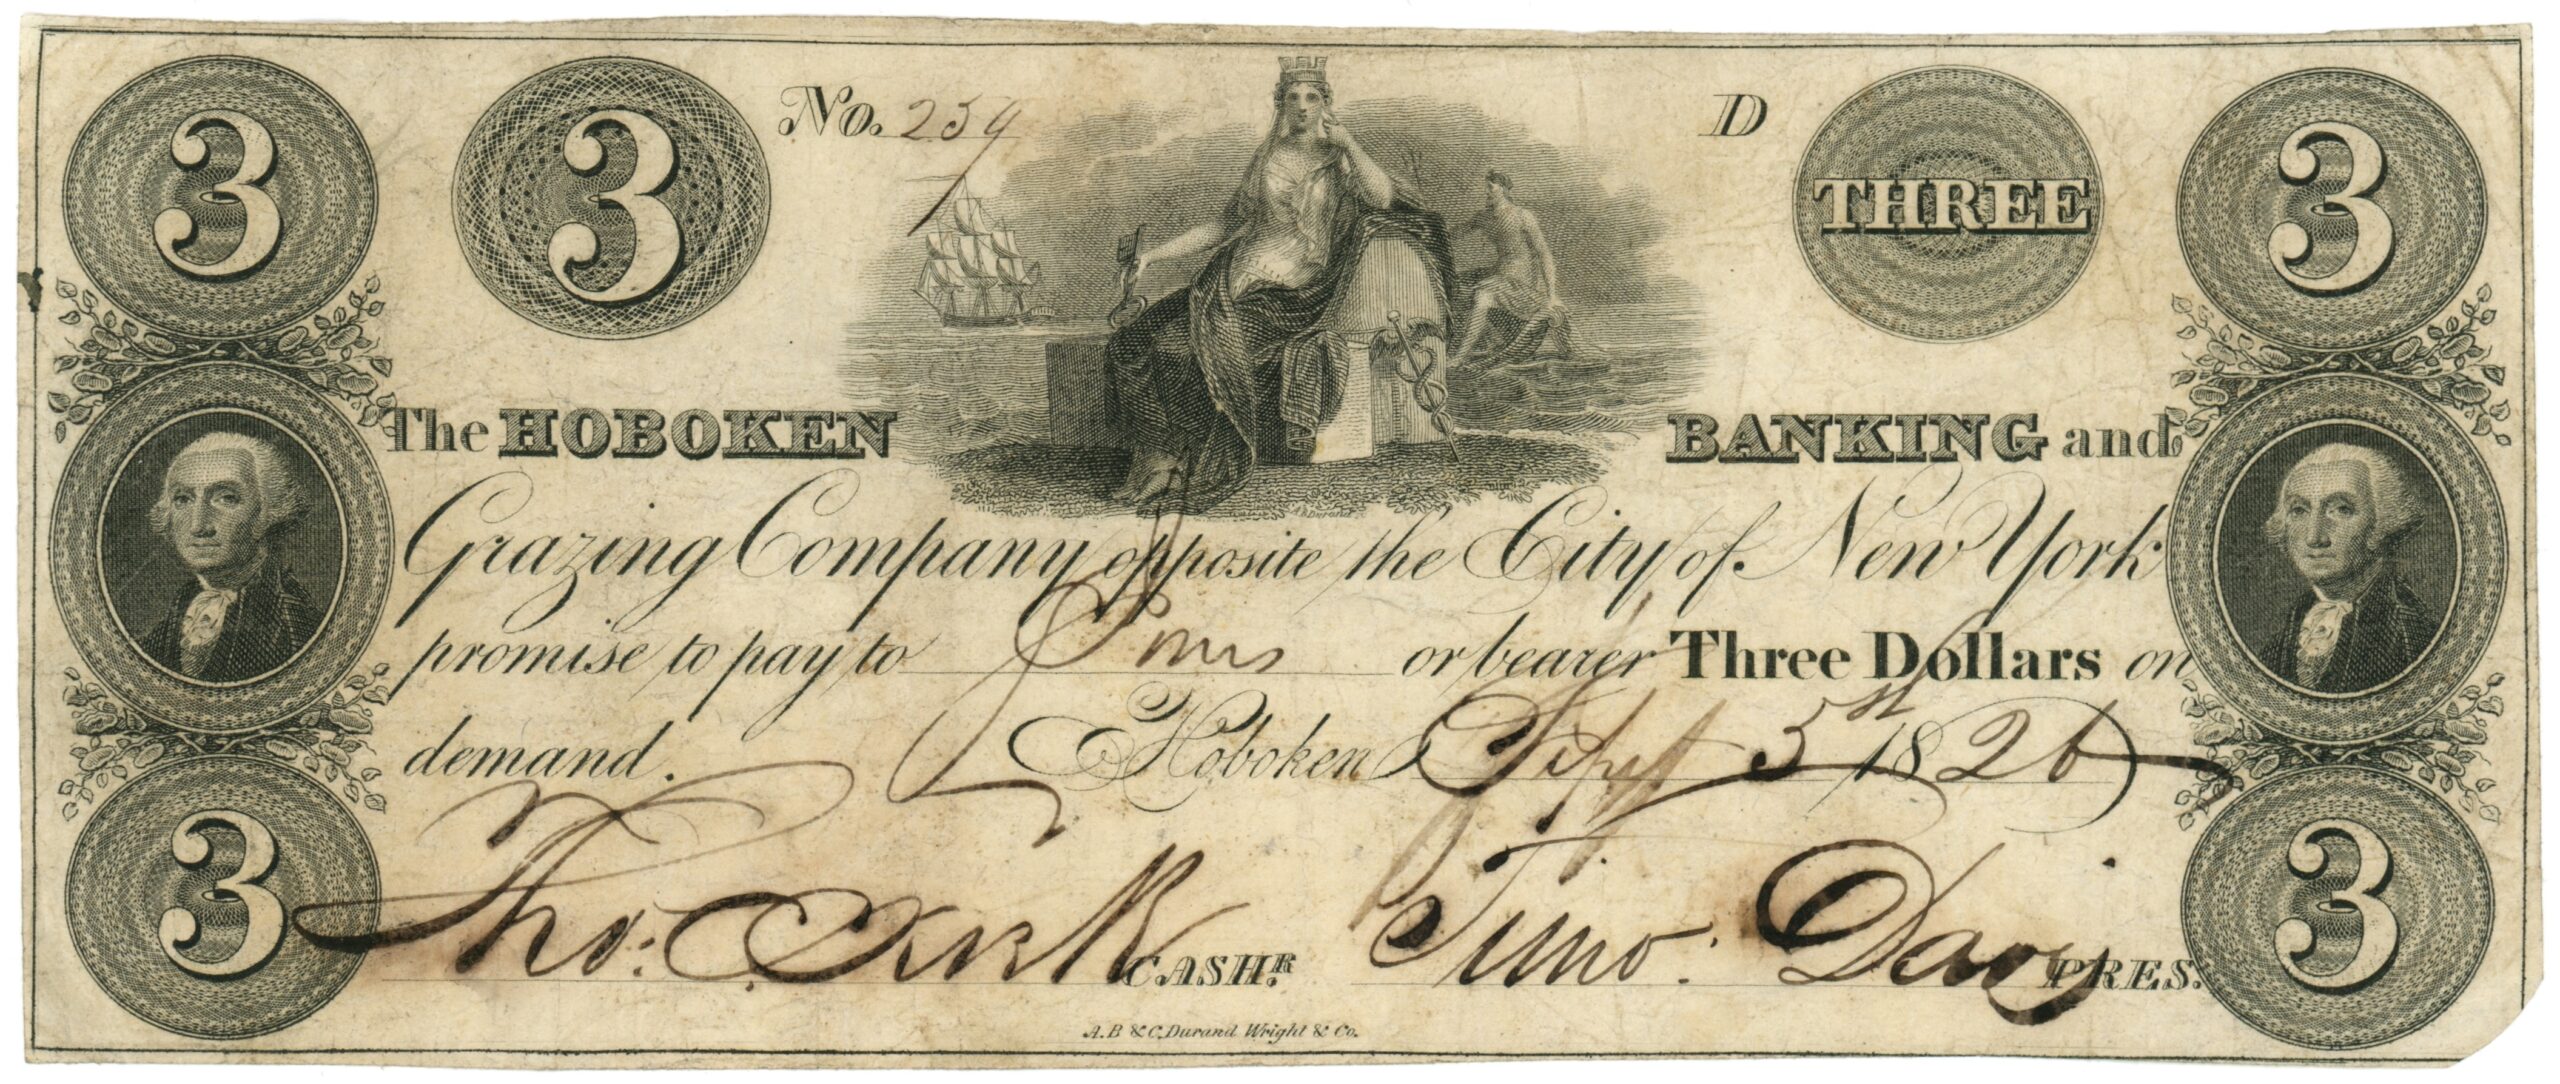 3 3 No. 259 D THREE 3
The HOBOKEN BANKING and
Grazing Company opposite the City of New York
promise to pay to or bearer Three Dollars on
demand. Hoboken Sept 5 1826
Tho: CASHR. Timo: Davis PRES.
3 3
A.B & C. Durand Wright & Co.